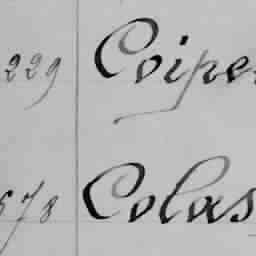 229 Coipe
578 Colas